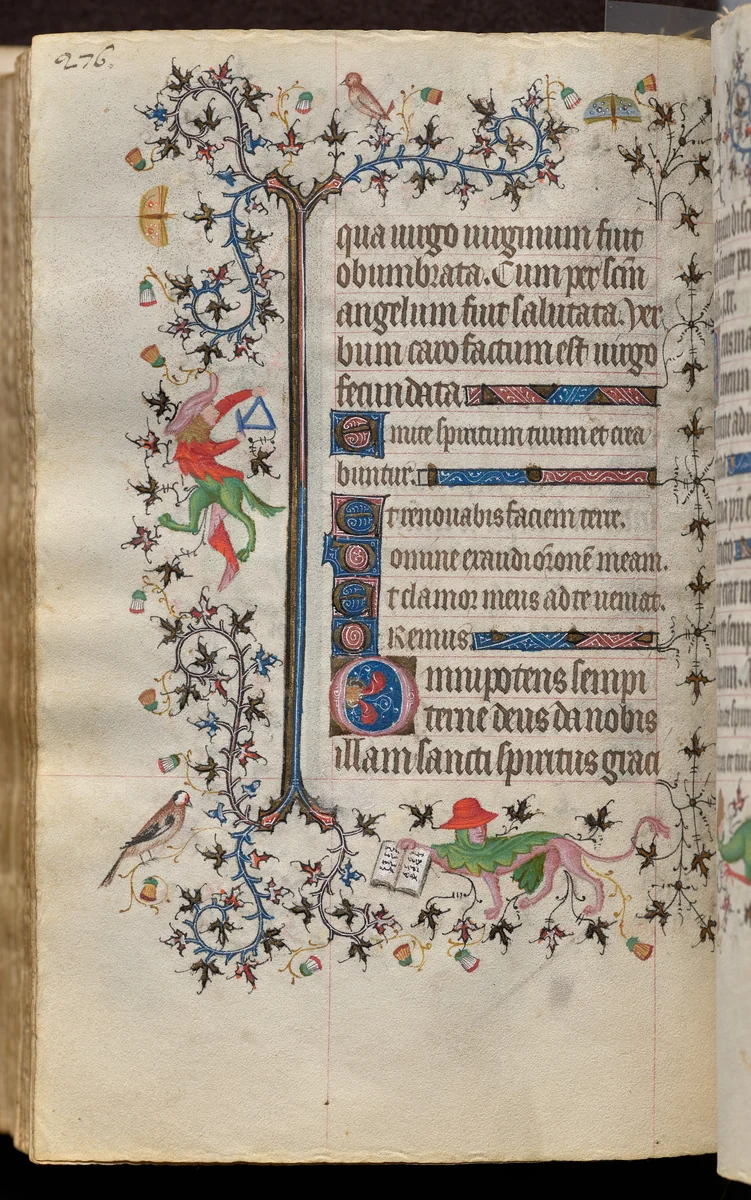 276.
qua uirgo uirginum fuit
obumbrata. Cum per scm̄
angelum fuit salutata. Ver
bum caro factum est uirgo
fecundata
Emite spiritum tuum et crea
buntur.
Et renouabis faciem terre.
Domine exaudi ōronē meam.
Et clamor meus ad te ueniat.
Oremus
Omnipotens sempi
terne deus da nobis
illam sancti spiritus graci